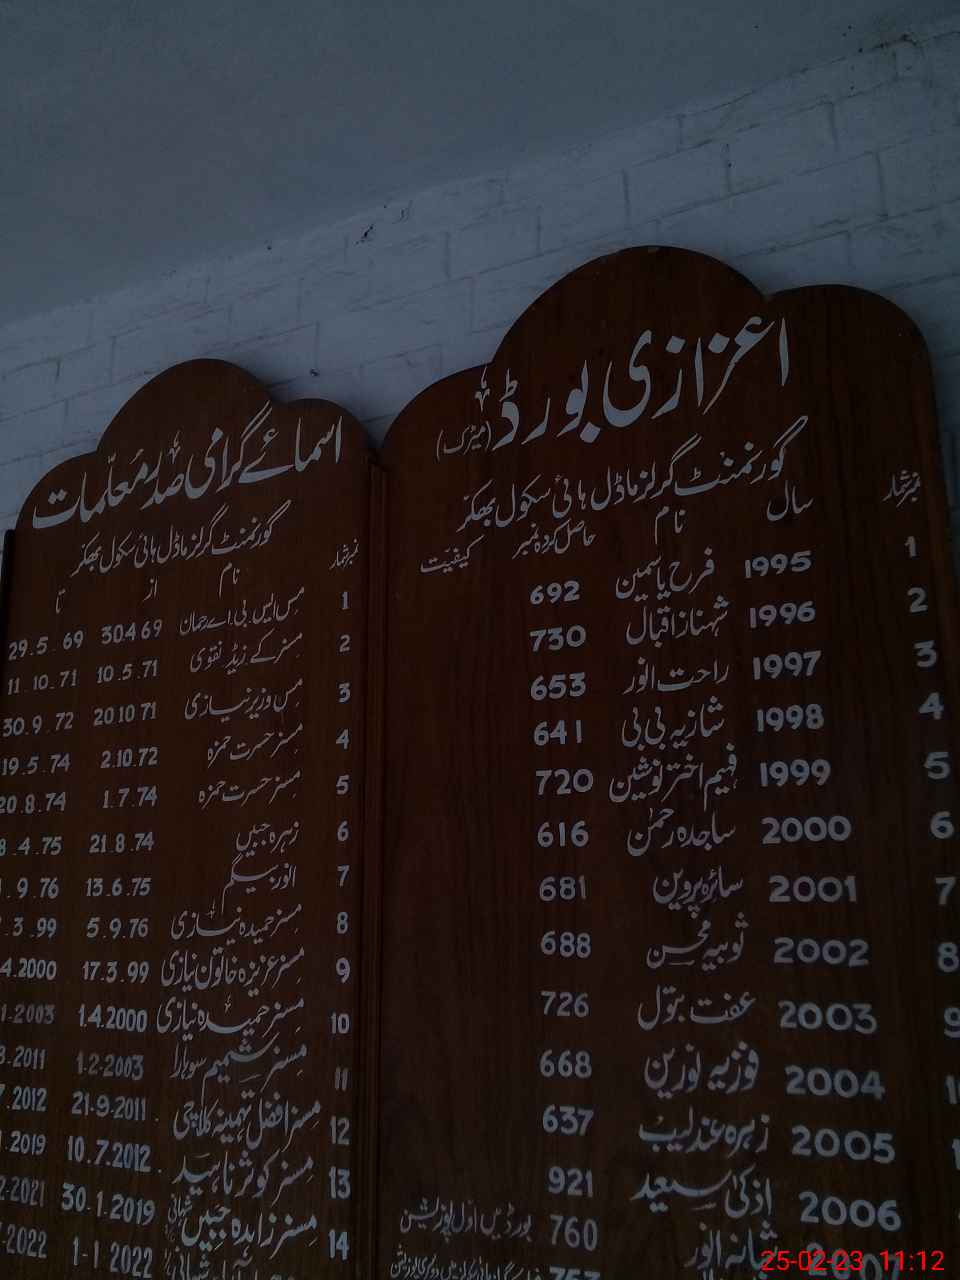 اعزازی بورڈ (میٹرک)
گورنمنٹ گرلز ماڈل ہائی سکول بھکر
نمبر شمار سال نام حاصل کردہ نمبر کیفیت
1 1995 فرح یاسمین 692
2 1996 شہناز اقبال 730
3 1997 راحت انور 653
4 1998 شازیہ بی بی 641
5 1999 فہیم اختر نوشین 720
6 2000 ساجدہ رحمٰن 616
7 2001 سائرہ پروین 681
8 2002 ثوبیہ محسن 688
9 2003 عفت بتول 726
2004 فوزیہ نورین 668
2005 زہرہ عندلیب 637
2006 اذکیٰ سعید 921
شانہ انور 760 بورڈ میں اول پوزیشن
اسمائے گرامی صدر معلمات
گورنمنٹ گرلز ماڈل ہائی سکول بھکر
نمبر شمار نام از تا
1 مس ایس بی اے رحمان 30.4.69 29.5.69
2 مسز کے زیڈ نقوی 10.5.71 11.10.71
3 مس وزیر نیازی 20.10.71 30.9.72
4 مسز حسرت حمزہ 2.10.72 19.5.74
5 مسز حسرت حمزہ 1.7.74 20.8.74
6 زہرہ جبیں 21.8.74 8.4.75
7 انور بیگم 13.6.75 .9.76
8 مسز حمیدہ نیازی 5.9.76 .3.99
9 مسز عزیزہ خاتون نیازی 17.3.99 4.2000
10 مسز حمیدہ نیازی 1.4.2000 1.2003
11 مسز شمیم سوہارا 1-2-2003 8.2011
12 مسز افضل تہمینہ کلاچی 21-9-2011 7.2012
13 مسز کوثر ناہید 10.7.2012 1.2019
14 مسز زاہدہ جبیں شہانی 30.1.2019 2-2021
1-1 2022 2022
25-02-23 11:12